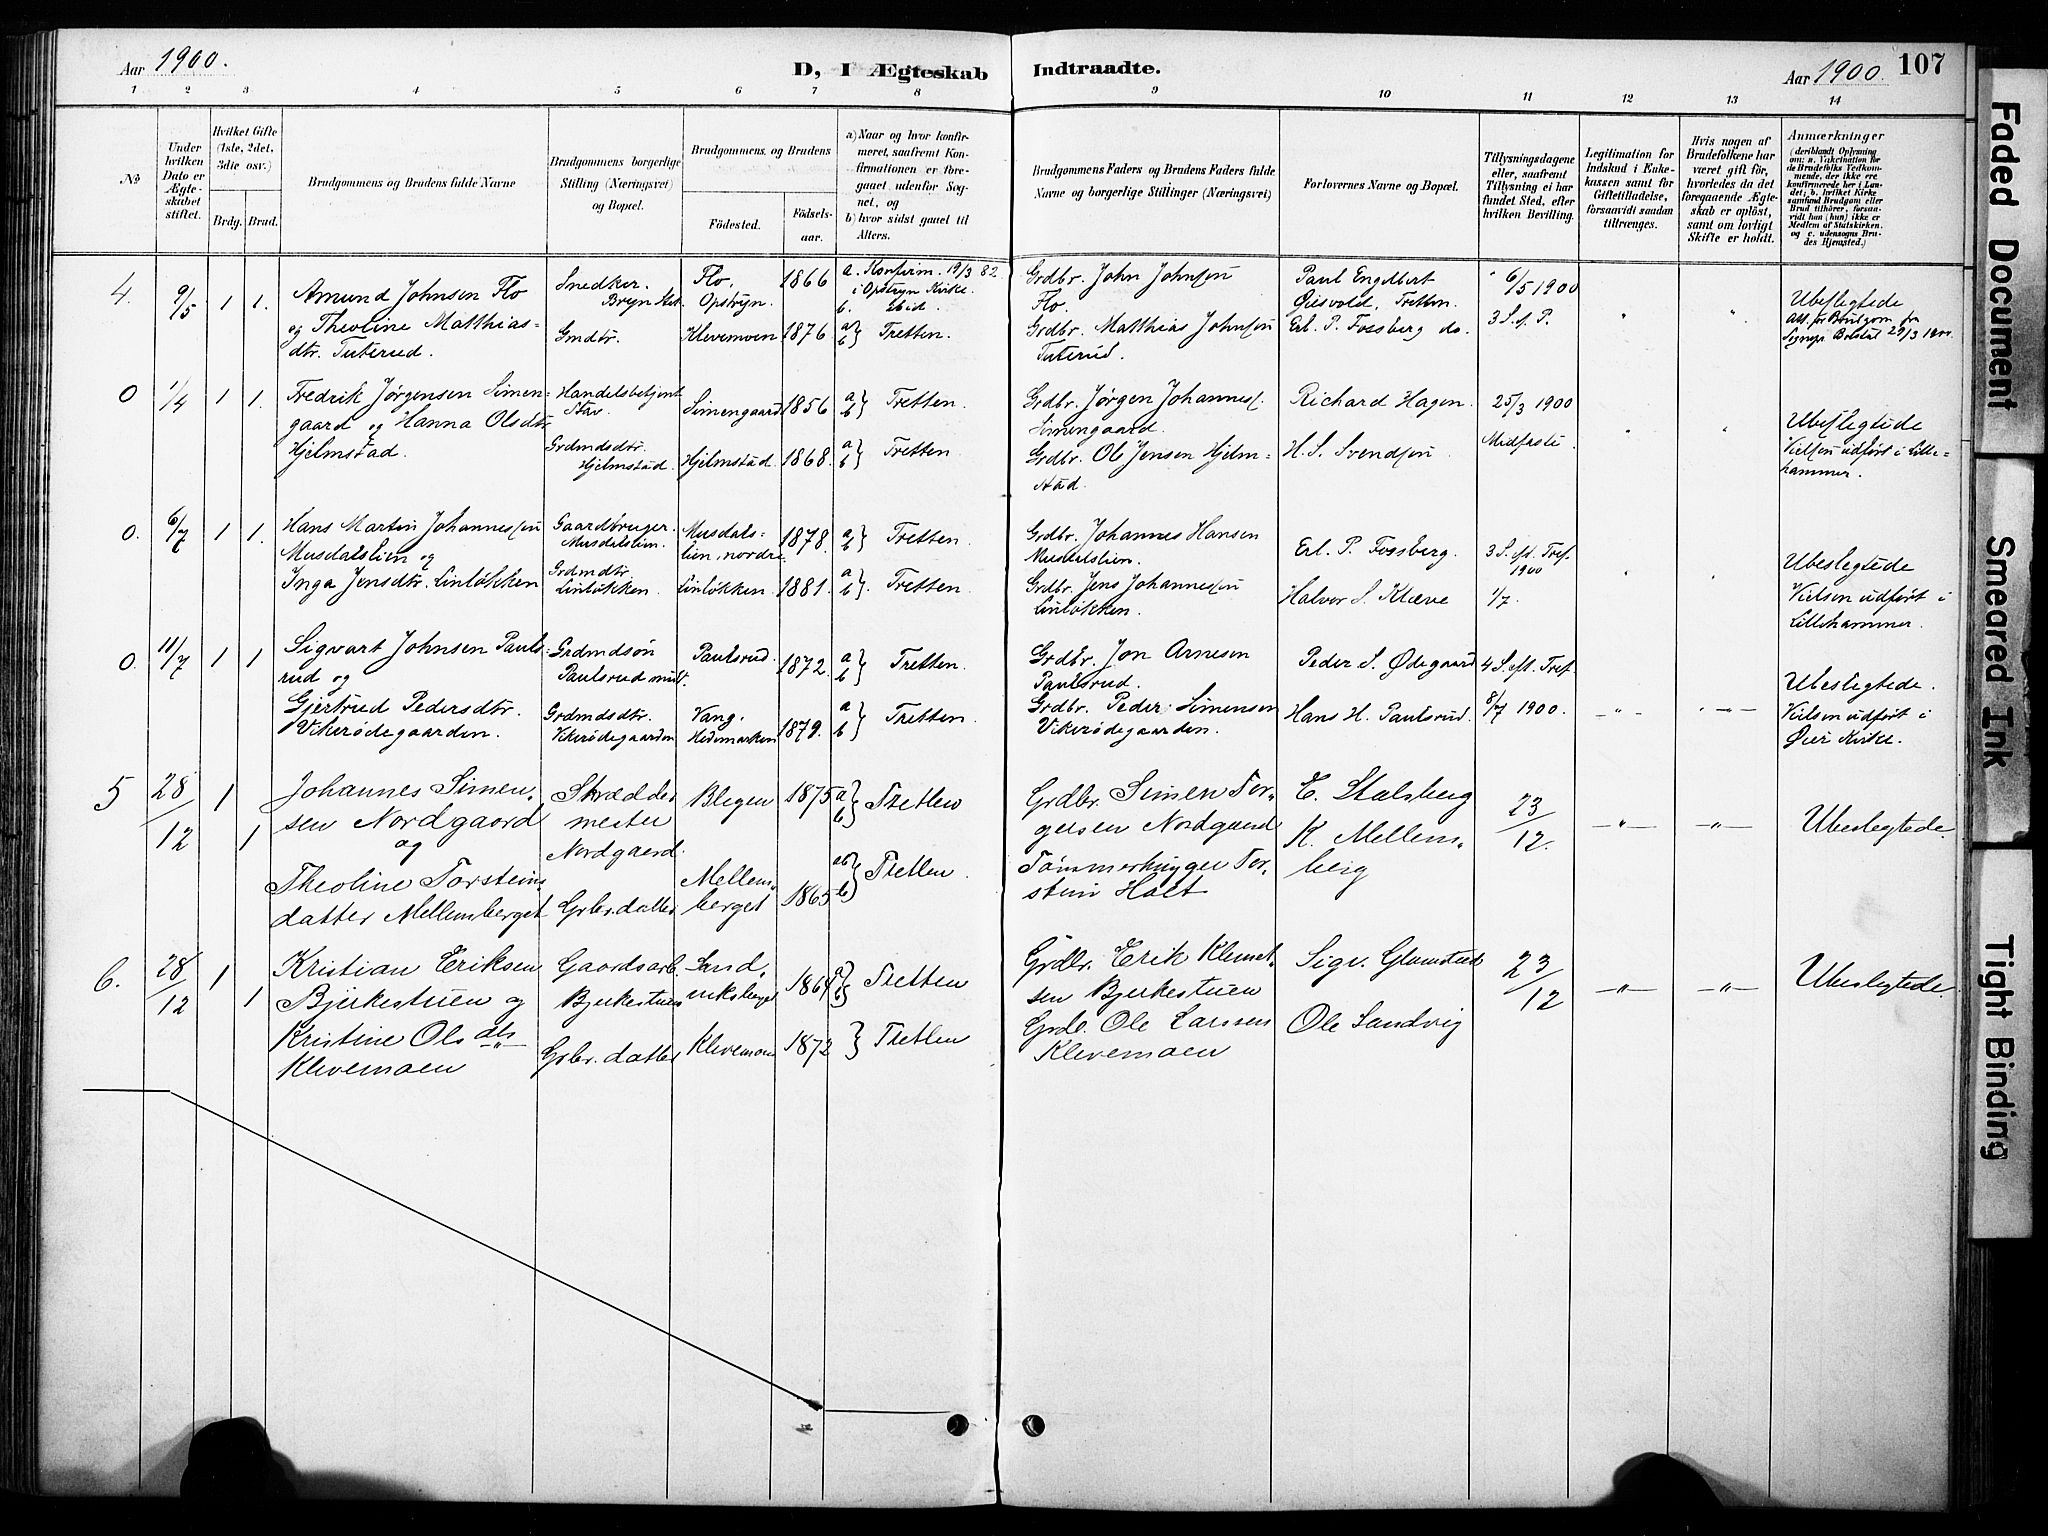 Aar 1900.
D, I Ægteskab Indtraadte.
Aar 1900.
107
1 2 3 4 5 6 7 8 9 10 11 12 13 14
No
Under hvilken Dato er Ægteskabet stiftet.
Hvilket Gifte (1ste, 2det, 3die osv.)
Brdg. Brud.
Brudgommens og Brudens fulde Navne
Brudgommens borgerlige Stilling (Næringsvei) og Bopæl.
Brudgommens og Brudens
Fødested.
Fødselsaar.
a) Naar og hvor konfirmeret, saafremt Konfirmationen er foregaaet udenfor Sognet, og
b) hvor sidst gaaet til Alters.
Brudgommens Faders og Brudens Faders fulde Navne og borgerlige Stillinger (Næringsvei)
Forlovernes Navne og Bopæl.
Tillysningsdagene eller, saafremt Tillysning ei har fundet Sted, efter hvilken Bevilling.
Legitimation for Indskud i Enkekassen samt for Giftetilladelse, forsaavidt saadan tiltrænges.
Hvis nogen af Brudefolkene har været gift før, hvorledes da det foregaaende Ægteskab er opløst, samt om lovligt Skifte er holdt.
Anmærkninger
(deriblandt Oplysning om: a. Vakcination for de Brudefolks Vedkommende, der ikke ere konfirmerede her i Landet; b. hvilket Kirkesamfund Brudgom eller Brud tilhører, forsaavidt han (hun) ikke er Medlem af Statskirken, og c. udensogns Brudes Hjemsted.)
4. 9/5 1 1.
Amund Johnsen Flo
og Theoline Matthias=
dtr. Tuterud.
Snedker.
Gmdtr.
Flo,
Opstryn.
Klevemoen
1866
1876
a. Konfirm. 19/3 82
i Opstryn Kirke.
b. ibid.
a b} Tretten.
Grdbr. John Johnsen
Flo.
Grdbr. Matthias Johnsen
Tuterud.
Paul Engelbert
Gisvold, Tretten.
Erl. P. Fossberg do.
6/5 1900
3 S. e. P.
" "
Ubeslegtede
Att. for Brudgom fra
0 1/4 1 1.
Fredrik Jørgensen Simen=
gaard og Hanna Olsdtr
Hjelmstad.
Handelsbetjent
Grdmdsdtr.
Hjelmstad.
Simengaard
Hjelmstad.
1856
1868.
a b} Tretten.
a b} Tretten.
Grdbr. Jørgen Johanness.
Simengaard.
Grdbr. Ole Jensen Hjelm=
stad.
Richard Hagen.
H. S. Svendsen
25/3 1900
Midfaste
" "
Ubeslegtede
Vielsen udført i Lille=
hammer.
0. 6/7 1 1.
Hans Martin Johannessen
Musdalslien og
Inga Jensdtr. Linløkken
Gaardbruger.
Musdalslien.
Grdmdtr.
Linløkken.
Musdals=
lien, nordre
Linløkken.
1878.
1881.
a b} Tretten.
a b} Tretten.
Grdbr. Johannes Hansen
Musdalslien.
Grdbr. Jens Johannessen
Linløkken.
Erl. P. Fossberg.
Halvor S. Klæve
3 S. eft. Tref.
1900
1/7.
" "
Ubeslegtede
Vielsen udført i
Lillehammer.
0. 11/7 1 1
Sigvart Johnsen Pauls=
rud og
Gjertrud Pedersdtr.
Vikerødegaarden.
Grdmdsøn
Paulsrud
Grdmdsdtr.
Vikerødegaarden
Paulsrud.
Vang.
Hedemarken
1872.
1879.
a b} Tretten.
a b} Tretten.
Grdbr. Jon Arnesen
Paulsrud.
Grdbr. Peder Simensen
Vikerødegaarden.
Peder S. Ødegaard
Hans H. Paulsrud.
4 S. eft. Tref.
8/7 1900.
—"— —"—
Ubeslegtede.
Vielsen udført i
Øier Kirke.
5 28/12 1 1
Johannes Simen=
sen Nordgaard
og
Theoline Torsteins
datter Mellemberget
Skrædder
mester
Nordgaard.
Grbr. datter
Blegen
Mellem=
berget
1875
1865
a b} Tretten
a b} Tretten.
Grdbr. Simen Tor=
gersen Nordgaard
Tømmerhugger Tor=
stein Holt
E. Stalsberg
K. Mellem=
berg
23/12.
—"— —"—
Ubeslegtede.
6. 28/12 1 1
Kristian Eriksen
Bjerkestuen og
Kristine Ols dtr
Klevemoen
Gaardsarb.
Bjerkestuen
Grbr. datter
Klevemoen
1864
1872
a b} Tretten
} Tretten
Grdbr. Erik Klemet=
sen Bjerkestuen
Grdb. Ole Larssen
Klevemoen
Sigv. Glomstad
Ole Sandvig
23/12
—"— —"—
Ubeslegtede.
Faded Document
Smeared Ink
Tight Binding